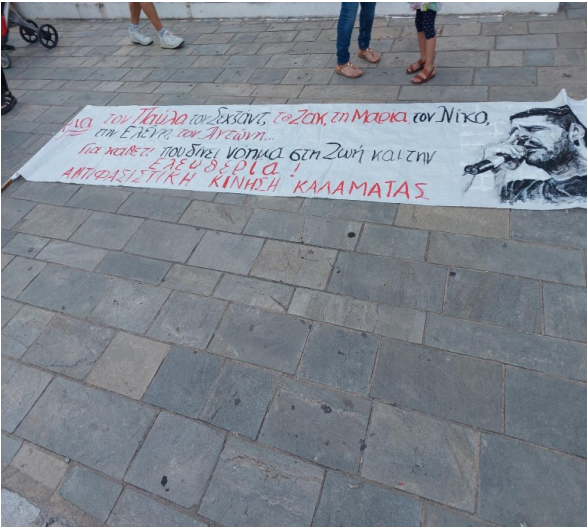 Για τον Παύλο τον Σεχζάντ, το Ζακ, τη Μαρία τον Νίκο,
την Ελένη, τον Αντώνη...
Για κάθετι που δίνει νόημα στη Ζωή και την
Ελευθερία!
ΑΝΤΙΦΑΣΙΣΤΙΚΗ ΚΙΝΗΣΗ ΚΑΛΑΜΑΤΑΣ